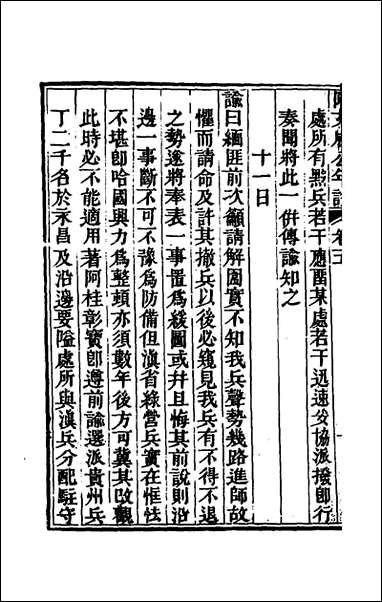 處所有黔兵若干應留某處若干迅速妥協派撥卽行
奏聞將此一併傳諭知之
十一日
諭曰緬匪前次籲請解圍實不知我兵聲勢幾路進師故
懼而請命及許其撤兵以後必窺見我兵有不得不退
之勢遂將奉表一事置爲緩圖或幷且悔其前說則沿
邊一事斷不可不豫爲防備但滇省綠營兵實在恇怯
不堪卽哈國興力爲整頓亦須數年後方可冀其改觀
此時必不能適用著阿桂彰寶卽遵前諭選派貴州兵
丁二千名於永昌及沿邊要隘處所與滇兵分配駐守